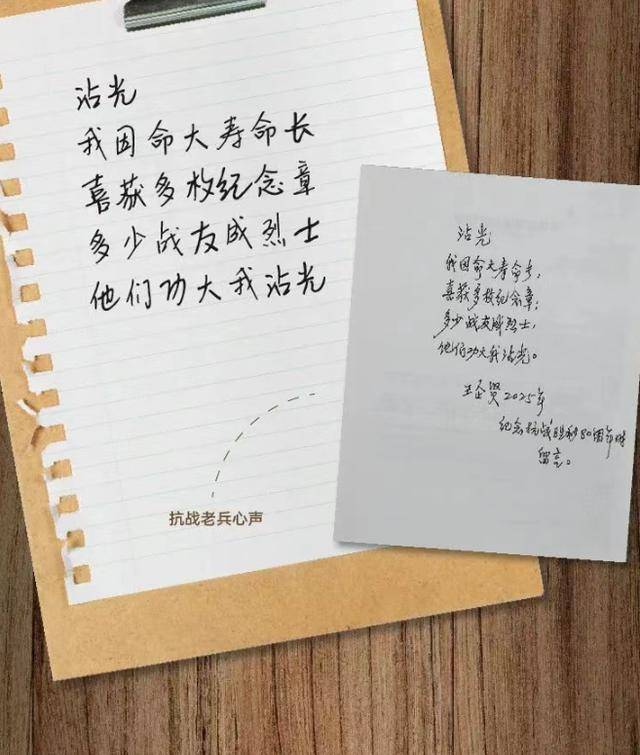 沾光
我因命大寿命长
喜获多枚纪念章
多少战友成烈士
他们功大我沾光
抗战老兵心声
沾光
我因命大寿命长，
喜获多枚纪念章；
多少战友成烈士，
他们功大我沾光。
2025年
纪念抗战胜利80周年时
留言。